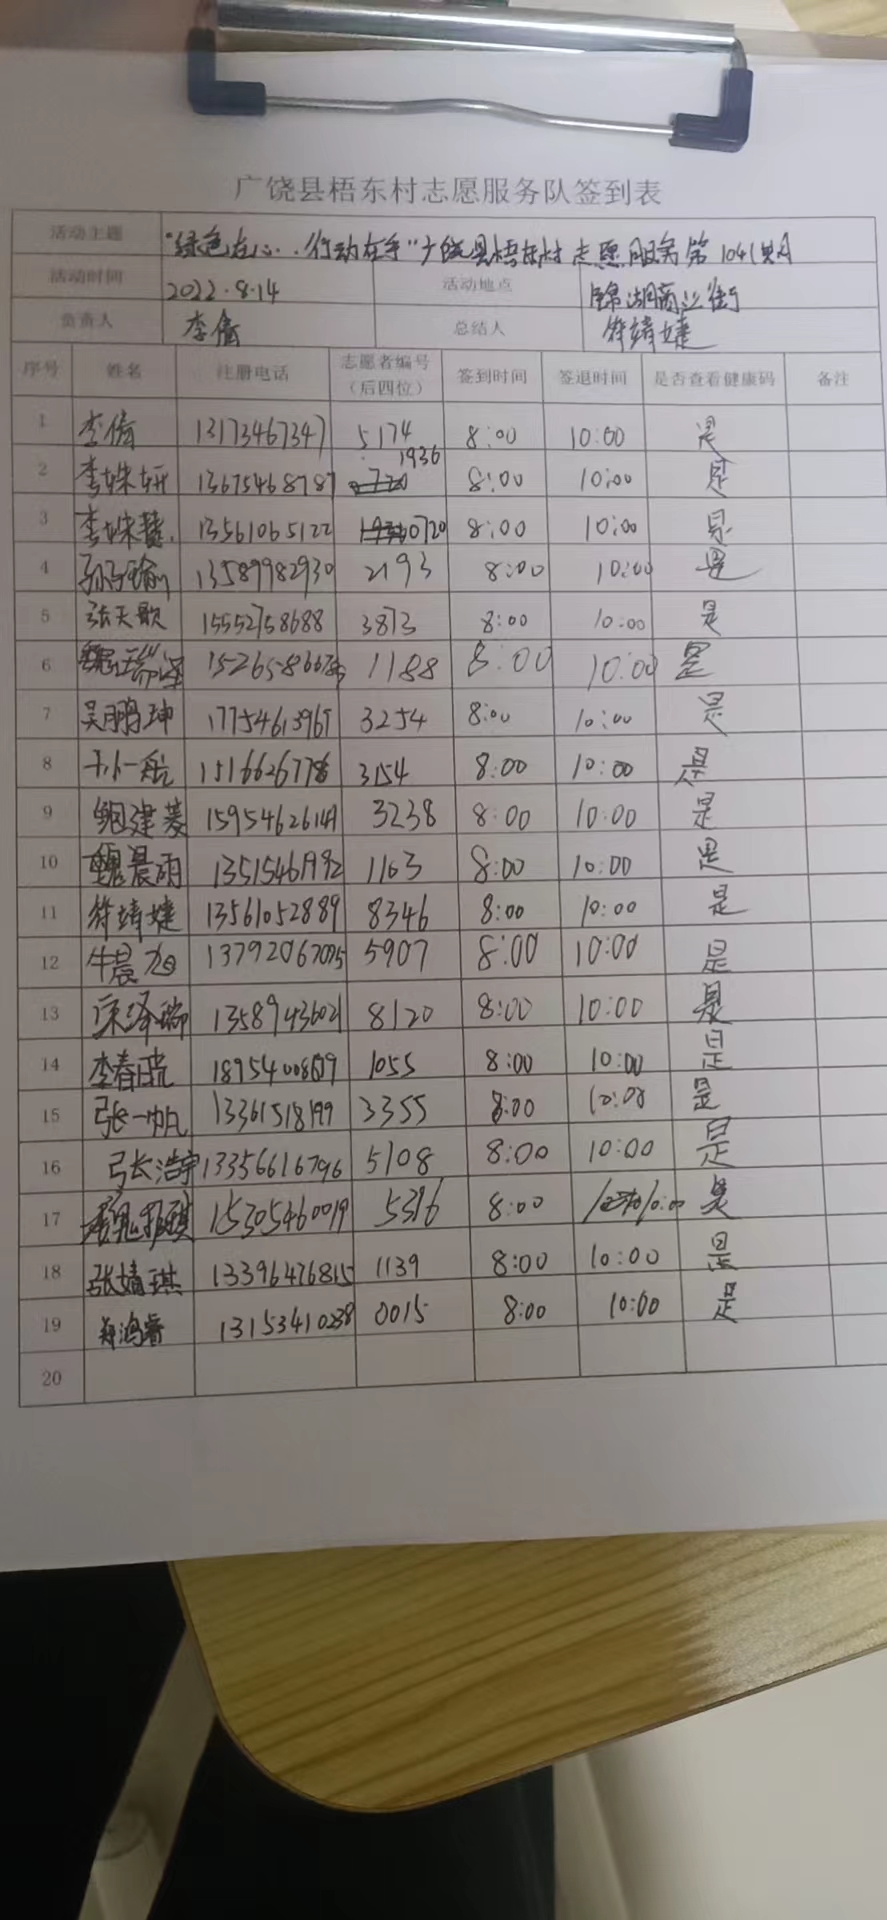 广饶县梧东村志愿服务队签到表
活动主题 "绿色在心，行动在手"广饶县梧东村志愿服务第1041期
活动时间 2022.8.14 活动地点 锦湖商业街
负责人 李倩 总结人 徐靖婕
序号 姓名 注册电话 志愿者编号（后四位） 签到时间 签退时间 是否查看健康码 备注
1 李倩 13173467347 5174 8:00 10:00 是
2 李姝妍 13675468787 1936 8:00 10:00 是
3 李姝 13561065122 0720 8:00 10:00 是
4 孙子瑜 13589982930 2193 8:00 10:00 是
5 张天歌 15552758688 3873 8:00 10:00 是
6 魏瑞泽 1188 8:00 10:00 是
7 吴鹏坤 17754613967 3254 8:00 10:00 是
8 一航 15166267786 3154 8:00 10:00 是
9 鲍建菱 3238 8:00 10:00 是
10 魏晨雨 13515461992 1163 8:00 10:00 是
11 徐靖婕 13561052889 8346 8:00 10:00 是
12 牛晨旭 13792067075 5907 8:00 10:00 是
13 宋泽瑞 13589436021 8120 8:00 10:00 是
14 李春晓 1055 8:00 10:00 是
15 张一帆 13361518199 3355 8:00 10:00 是
16 张浩宇 13356616796 5108 8:00 10:00 是
17 15305460019 5396 8:00 10:00 是
18 张婧琪 13396476815 1139 8:00 10:00 是
19 鸿睿 13153410238 0015 8:00 10:00 是
20